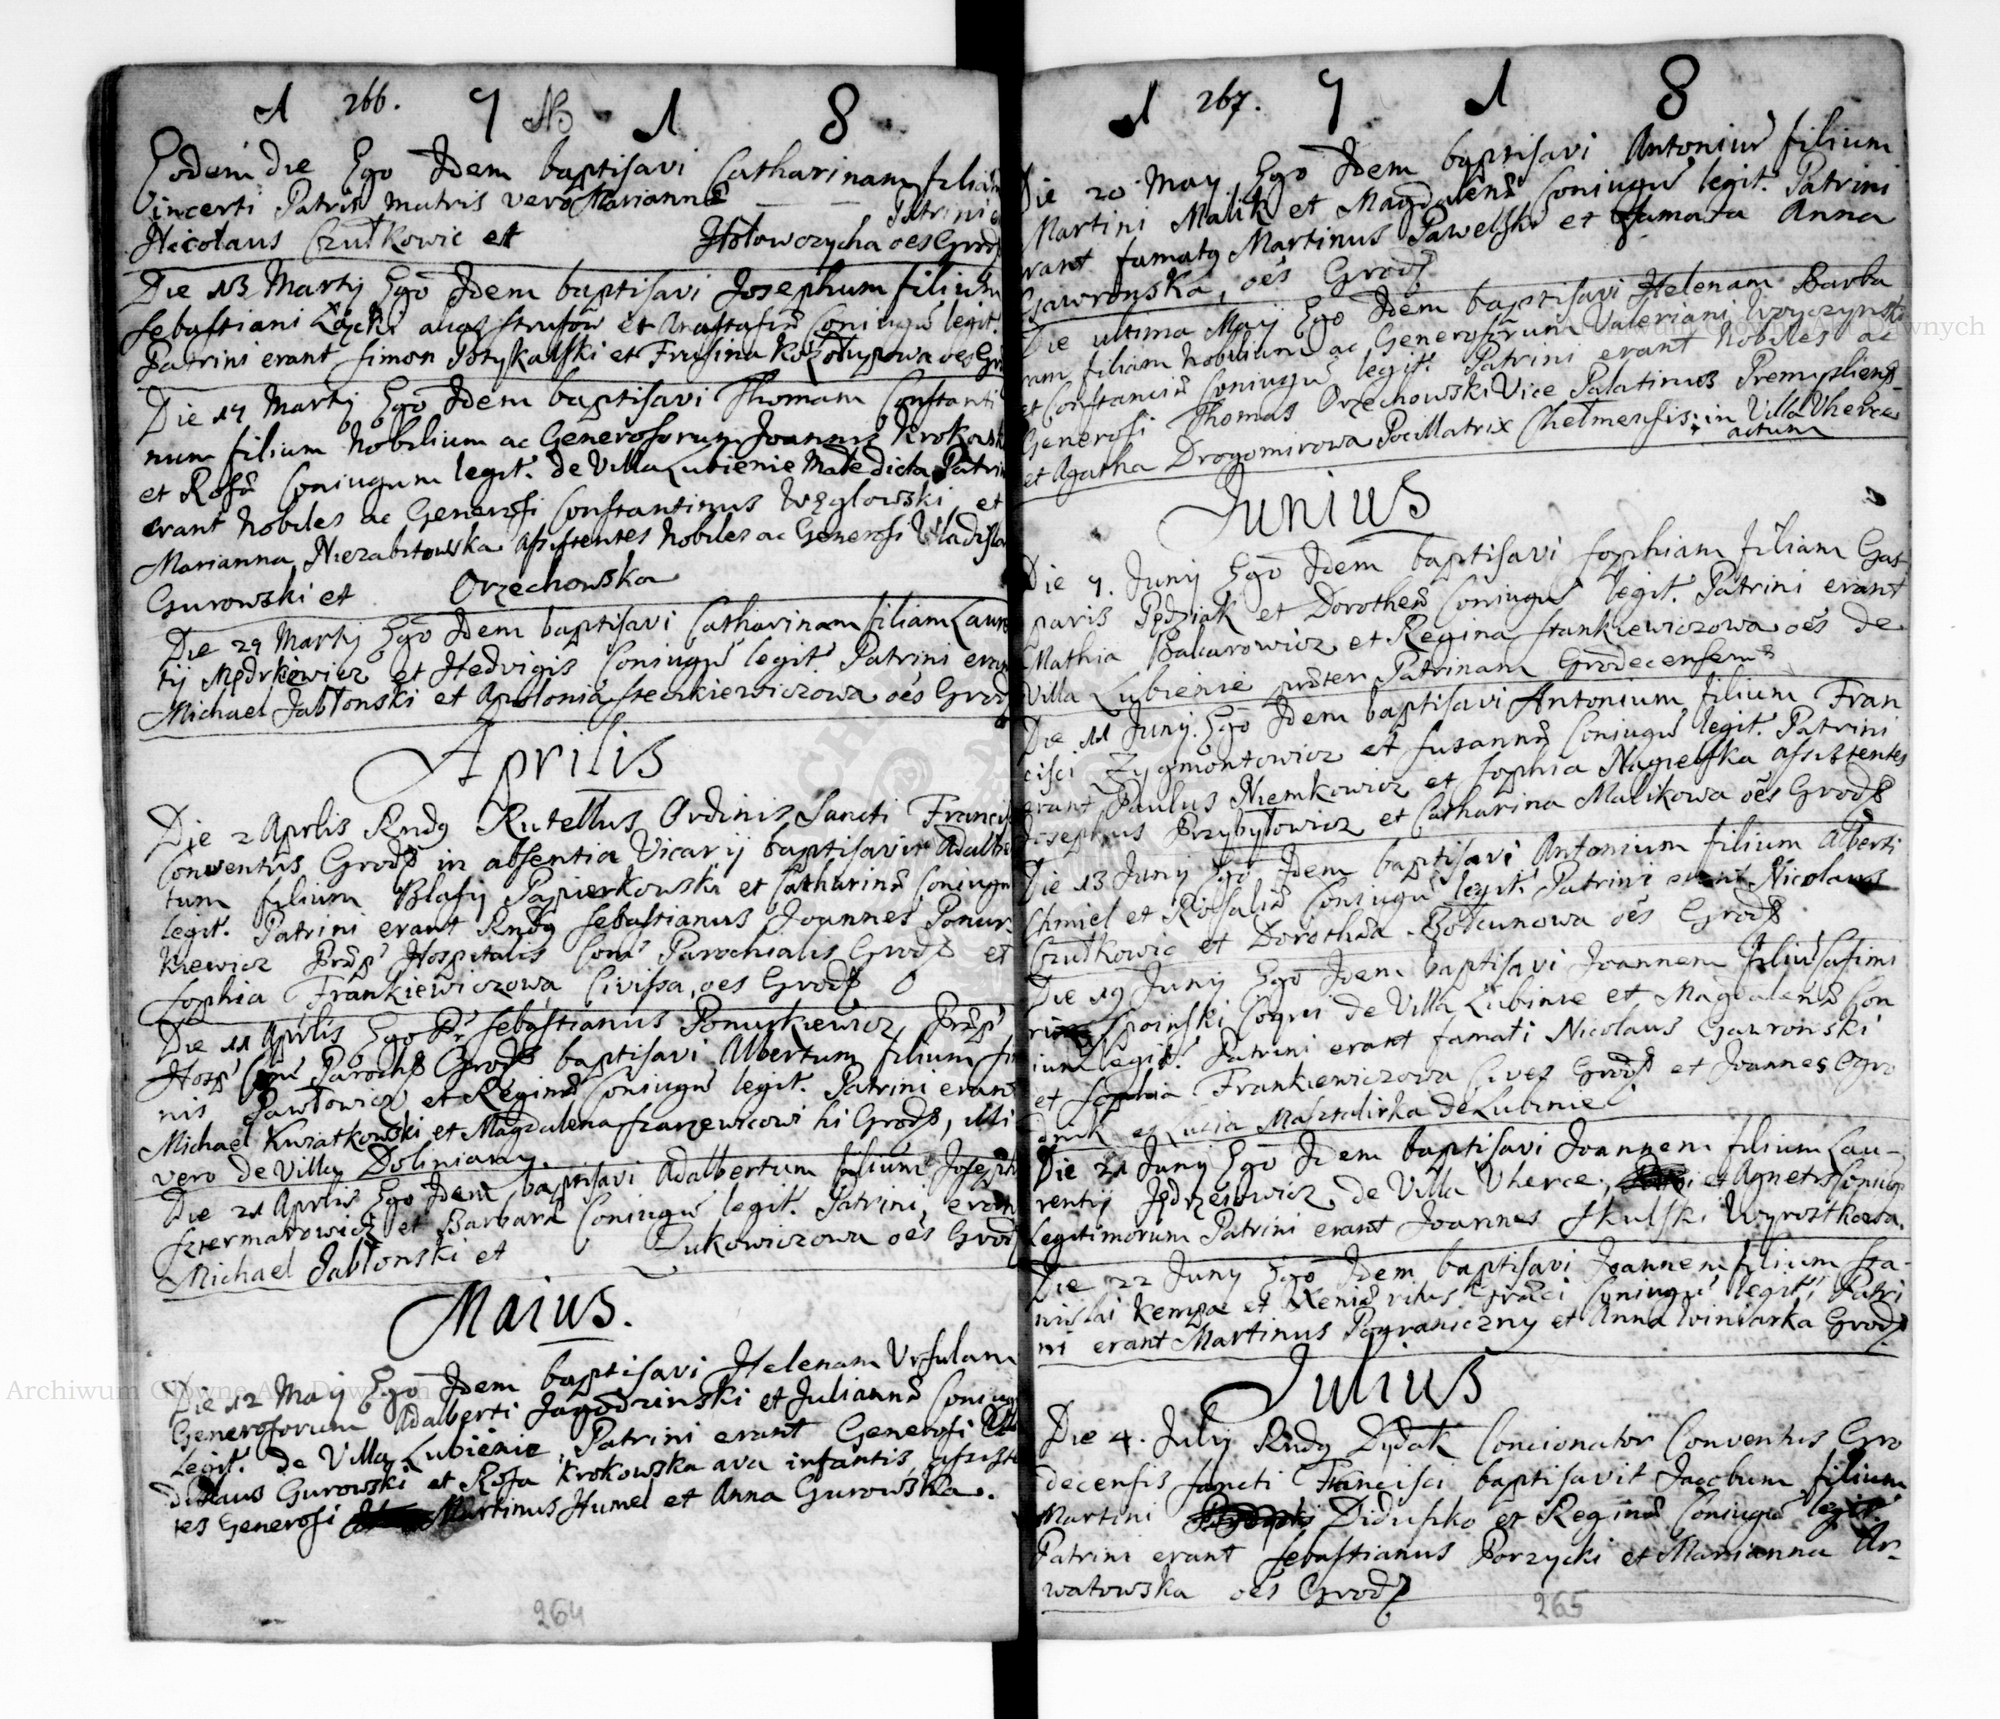 1 266. 7 NB 1 8
Eodem die Ego Idem baptisavi Catharinam filiam
incerti Patris matris vero Mariannæ — — Patrini
Nicolaus Czułkowic et Hołowczycha oēs Grod
Die 13 Martij Ego Idem baptisavi Josephum filium
Sebastiani Łącki et Anastasiæ Coniugū legit.
Patrini erant Simon et Frusina oēs Gr
Die 17 Martij Ego Idem baptisavi Thomam Constanti
num filium Nobilium ac Generosorum Joannis Krokowsk
et Rosæ Coniugum legit. de Villa Lubienie Patrin
erant Nobiles ac Generosi Constantinus Węglowski et
Marianna Niezabitowska assistentes Nobiles ac Generosi Vladisla
Gurowski et Orzechowska
Die 29 Martij Ego Idem baptisavi Catharinam filiam Laure
tij Mędrkiewicz et Hedvigis Coniugū legit Patrini eran
Michael Jabłonski et Apolonia Steckiewiczowa oēs Grod
Aprilis
Die 2 Aprlis Rndg Rutellus Ordinis Sancti Francis
Conventus Grod in absentia Vicarij baptisavit Adalber
tum filium Blasij Papierkowski et Catharinæ Coniugu
legit. Patrini erant Rndg Sebastianus Joannes Ponur-
kiewicz Hospitalis Parochialis Grod et
Sophia Frankiewiczowa Civissa, oes Grod
Die 11 Aprlis Ego Sebastianus Ponurkiewicz
Hosp Paroch Grod baptisavi Albertum filium
nis Pawłowicz et Reginæ Coniugū legit. Patrini erant
Michael Kwiatkowski et Magdalena hi Grod, illi
vero de Villa Doliniany.
Die 21 Aprlis Ego Idem baptisavi Adalbertum filium Joseph
Sziermarowicz et Barbaræ Coniugū legit. Patrini eran
Michael Jabłonski et Zukowiczowa oēs Grod
Maius.
Die 12 Maij Ego Idem baptisavi Helenam Ursulam
Generosorum Adalberti Jagodzinski et Juliannæ Coniug
Legit. de Villa Lubienie, Patrini erant Generosi
dislaus Gurowski et Rosa Krokowska ava infantis, assiste
tes Generosi Martinus Humel et Anna Gurowska.
264
1 267. 7 1 8
Die 20 May Ego Idem baptisavi Antoniū filium
Martini Malik et Magdalenæ Coniugū legit. Patrini
erant famatg Martinus Pawelski et famata Anna
Gawronska, oēs Grod
Die ultima Maij Ego Idem baptisavi Helenam Barba
ram filiam Nobilium ac Generosorum Valeriani
et Constanciæ Coniugū legit. Patrini erant Nobiles ac
Generosi Thomas Orzechowski Vice Palatinus Premisliens
et Agatha Drogomirowa Pocillatrix Chelmensis: in Villa Vherce
actum
Junius
Die 7. Junij Ego Idem baptisavi Sophiam filiam Gas-
paris Pędziak et Dorotheæ Coniugū legit. Patrini erant
Mathia Bakarowicz et Regina Stankiewiczowa oēs de
Villa Lubienie præter Patrinam Grodecensem
Die 11 Junij. Ego Idem baptisavi Antonium filium Fran
cisci Zygmontowicz et Susannæ Coniugū legit. Patrini
erant Paulus Niemkowicz et Sophia Nagielska assistentes
Josephus Przybyłowicz et Catharina Malikowa oēs Grod
Die 13 Junij Ego Idem baptisavi Antonium filium Alberti
Chmiel et Rosaliæ Coniugū legit. Patrini erant Nicolaus
Czułkowic et Dorothea Bołcunowa oēs Grod
Die 19 Junij Ego Idem baptisavi Joannem filiū Casimi
ri Spoinski Coqui de Villa Lubinie et Magdalenæ Con
ium legit. Patrini erant famati Nicolaus Gawronski
et Sophia Frankiewiczowa Cives Grod et Joannes Ogro
dnik et Lucia Masztalirka de Lubinie
Die 21 Junij Ego Idem baptisavi Joannem filium Lau-
rentij Jędrzeiowicz de Villa Vherce, et Agnetis Coniugū
Legitimorum Patrini erant Joannes Skulski Wyrostkowa.
Die 22 Junij Ego Idem baptisavi Joannem filium Sta-
nislai Kempa et Xeniæ ritus Græci Coniugū legit, Patri
ni erant Martinus Pograniczny et Anna Winiarka Grod.
Julius
Die 4. Julij Rndg Dydak Concionator Conventus Gro
decensis Sancti Francisci baptisavit Jacobum filium
Martini Didusko et Reginæ Coniugū legit.
Patrini erant Sebastianus Porzycki et Marianna Ar-
watowska oēs Grod
265
Archiwum Główne Akt Dawnych
Archiwum Główne Akt Dawnych